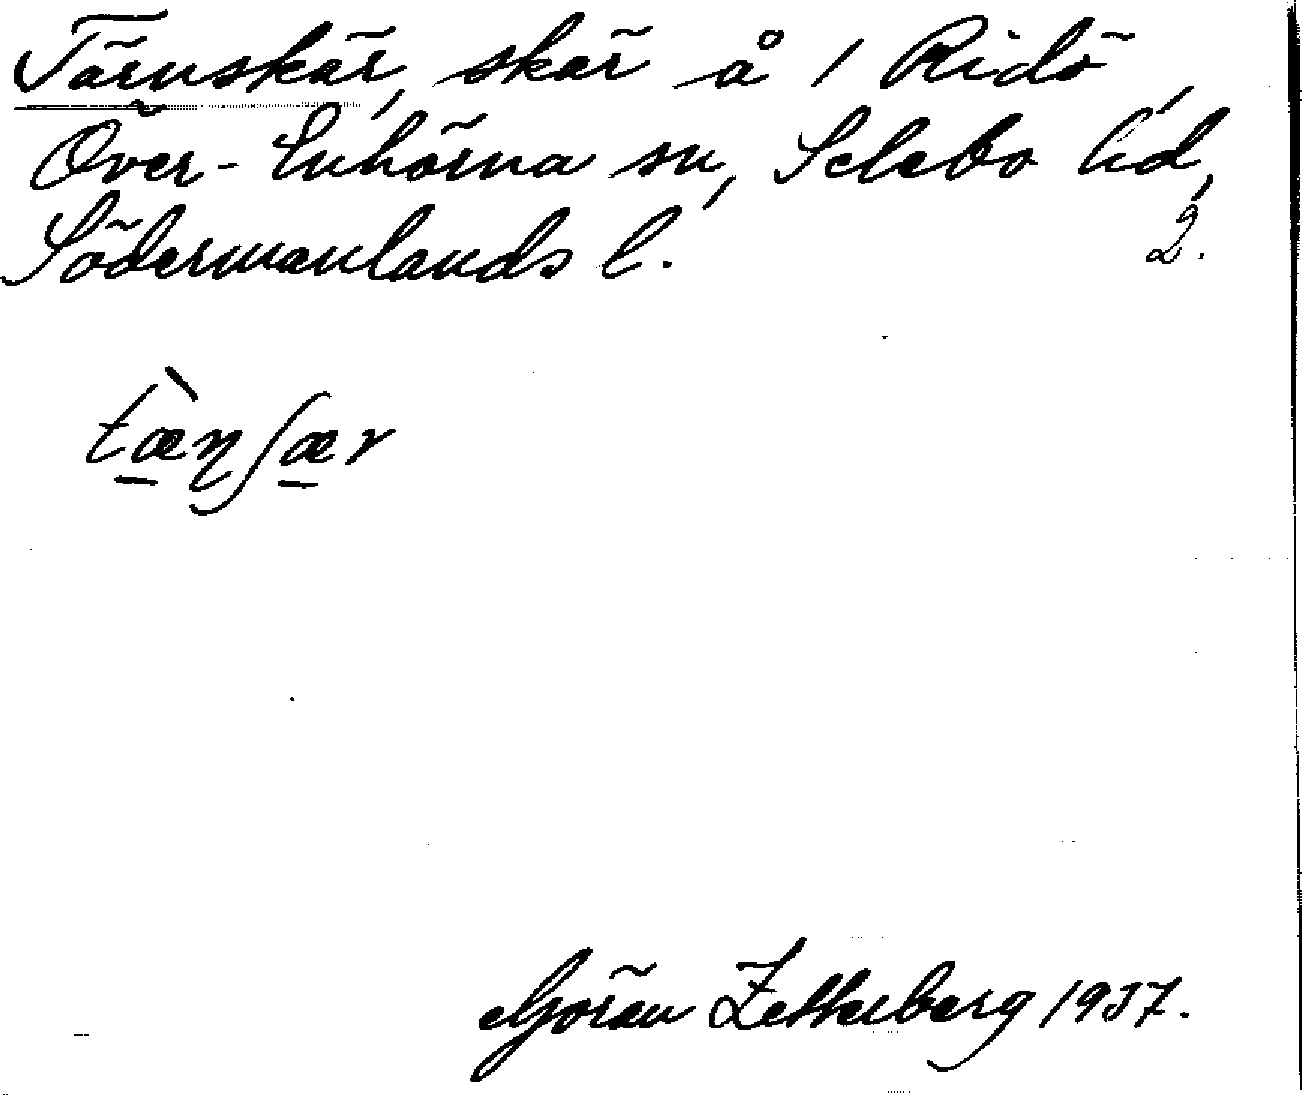 Tärnskär, skär å 1 Ridö,
Över-Enhörna sn, Selebo hd,
Södermanlands l. 2.
tæ̀ɳʃær
Göran Zetterberg 1937.